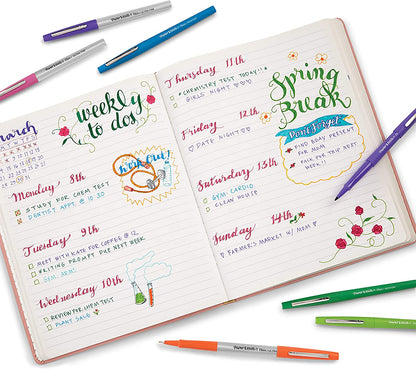 March
weekly
to dos
work out!
Monday 8th
STUDY FOR CHEM TEST
DENTIST APPT. @ 10:30
Tuesday 9th
MEET WITH KATE FOR COFFEE @ 12
WRITING PROMPT DUE NEXT WEEK
GYM: ARMS!
Wednesday 10th
REVIEW FOR CHEM TEST
PLANT SALE
Thursday 11th
CHEMISTRY TEST TODAY!!
GIRLS NIGHT
Friday 12th
DATE NIGHT
Saturday 13th
GYM: CARDIO
CLEAN HOUSE
Sunday 14th
FARMER'S MARKET W/ MOM
Spring
Break
Don't Forget
FIND BDAY PRESENT
FOR MOM
PACK FOR TRIP NEXT
WEEK!
Paper Mate
Paper Mate
Paper Mate
Paper Mate
Paper Mate
Paper Mate